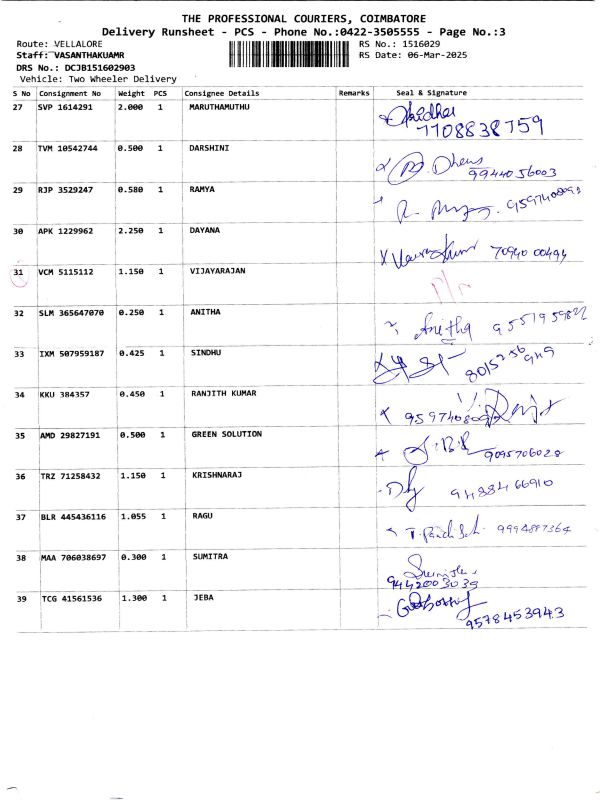 THE PROFESSIONAL COURIERS, COIMBATORE
Delivery Runsheet - PCS - Phone No.:0422-3505555 - Page No.:3
Route: VELLALORE RS No.: 1516029
Staff: VASANTHAKUAMR RS Date: 06-Mar-2025
DRS No.: DCJB151602903
Vehicle: Two Wheeler Delivery
S No Consignment No Weight PCS Consignee Details Remarks Seal & Signature
27 SVP 1614291 2.000 1 MARUTHAMUTHU
7708838759
28 TVM 10542744 0.500 1 DARSHINI
99440 56003
29 RJP 3529247 0.580 1 RAMYA
30 APK 1229962 2.250 1 DAYANA
70940 00494
31 VCM 5115112 1.150 1 VIJAYARAJAN
32 SLM 365647070 0.250 1 ANITHA
Anitha
33 IXM 507959187 0.425 1 SINDHU
34 KKU 384357 0.450 1 RANJITH KUMAR
35 AMD 29827191 0.500 1 GREEN SOLUTION
9095706028
36 TRZ 71258432 1.150 1 KRISHNARAJ
94884 66910
37 BLR 445436116 1.055 1 RAGU
9994887364
38 MAA 706038697 0.300 1 SUMITRA
9442003039
39 TCG 41561536 1.300 1 JEBA
9578453943